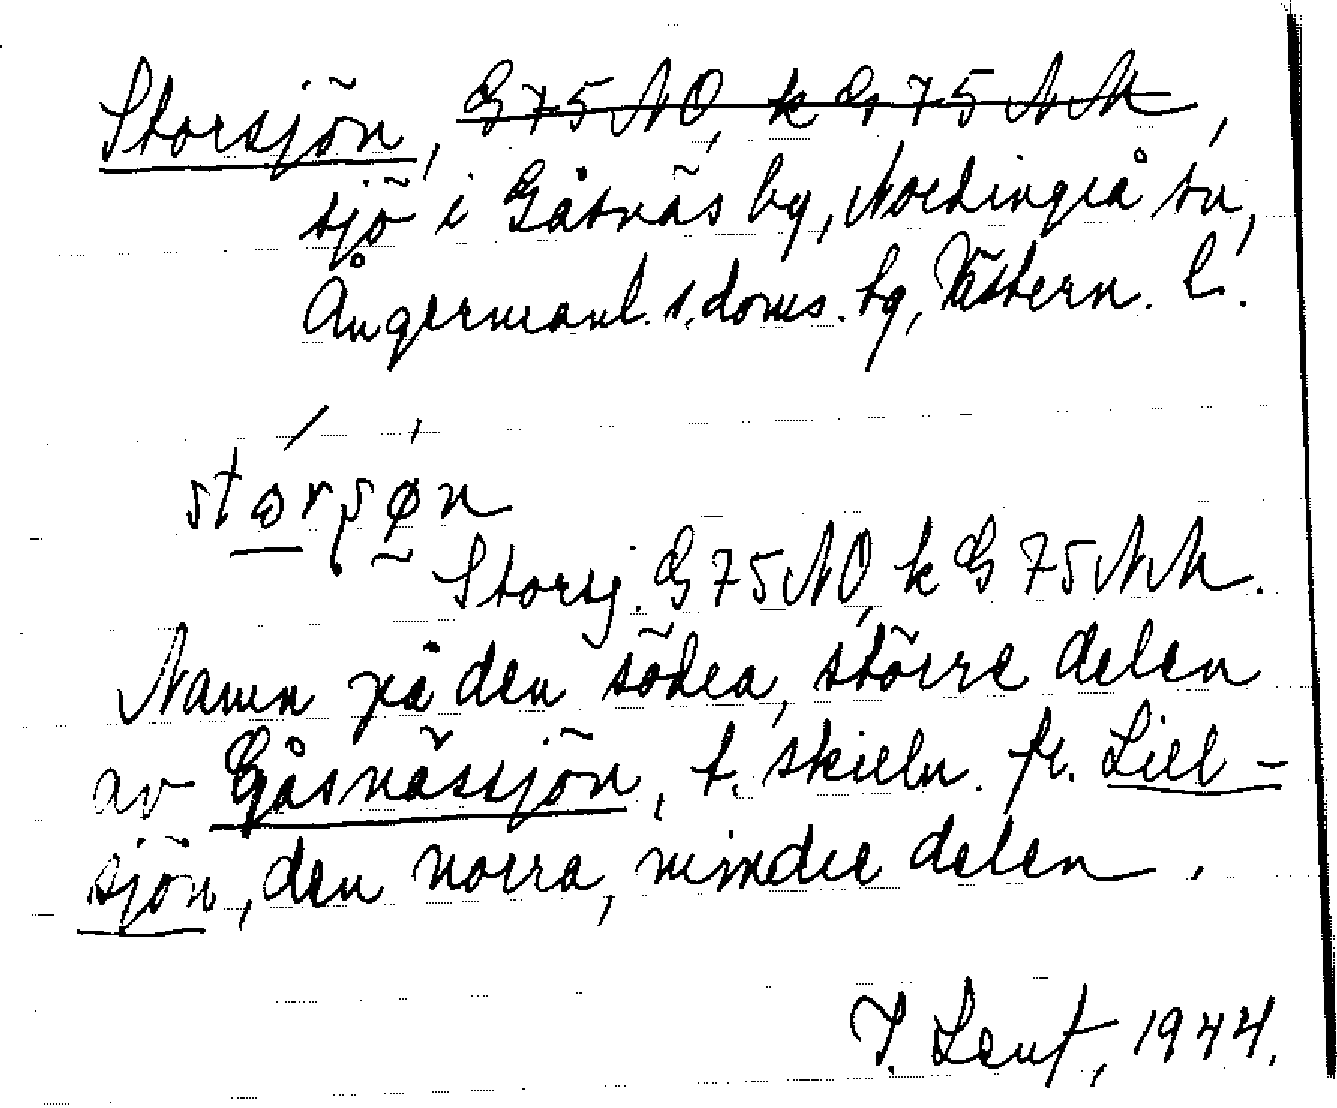 Storsjön, G 75 NO, k G 75 NN,
sjö i Gåsnäs by, Nordingrå sn,
Ångermanl. s. doms. tg, Västern. l.
størsøn
Storsj. G 75 NO, k G 75 NN.
Namn på den södra, större delen
av Gåsnässjön, t. skilln. fr. Lill-
sjön, den norra, mindre delen.
1944.